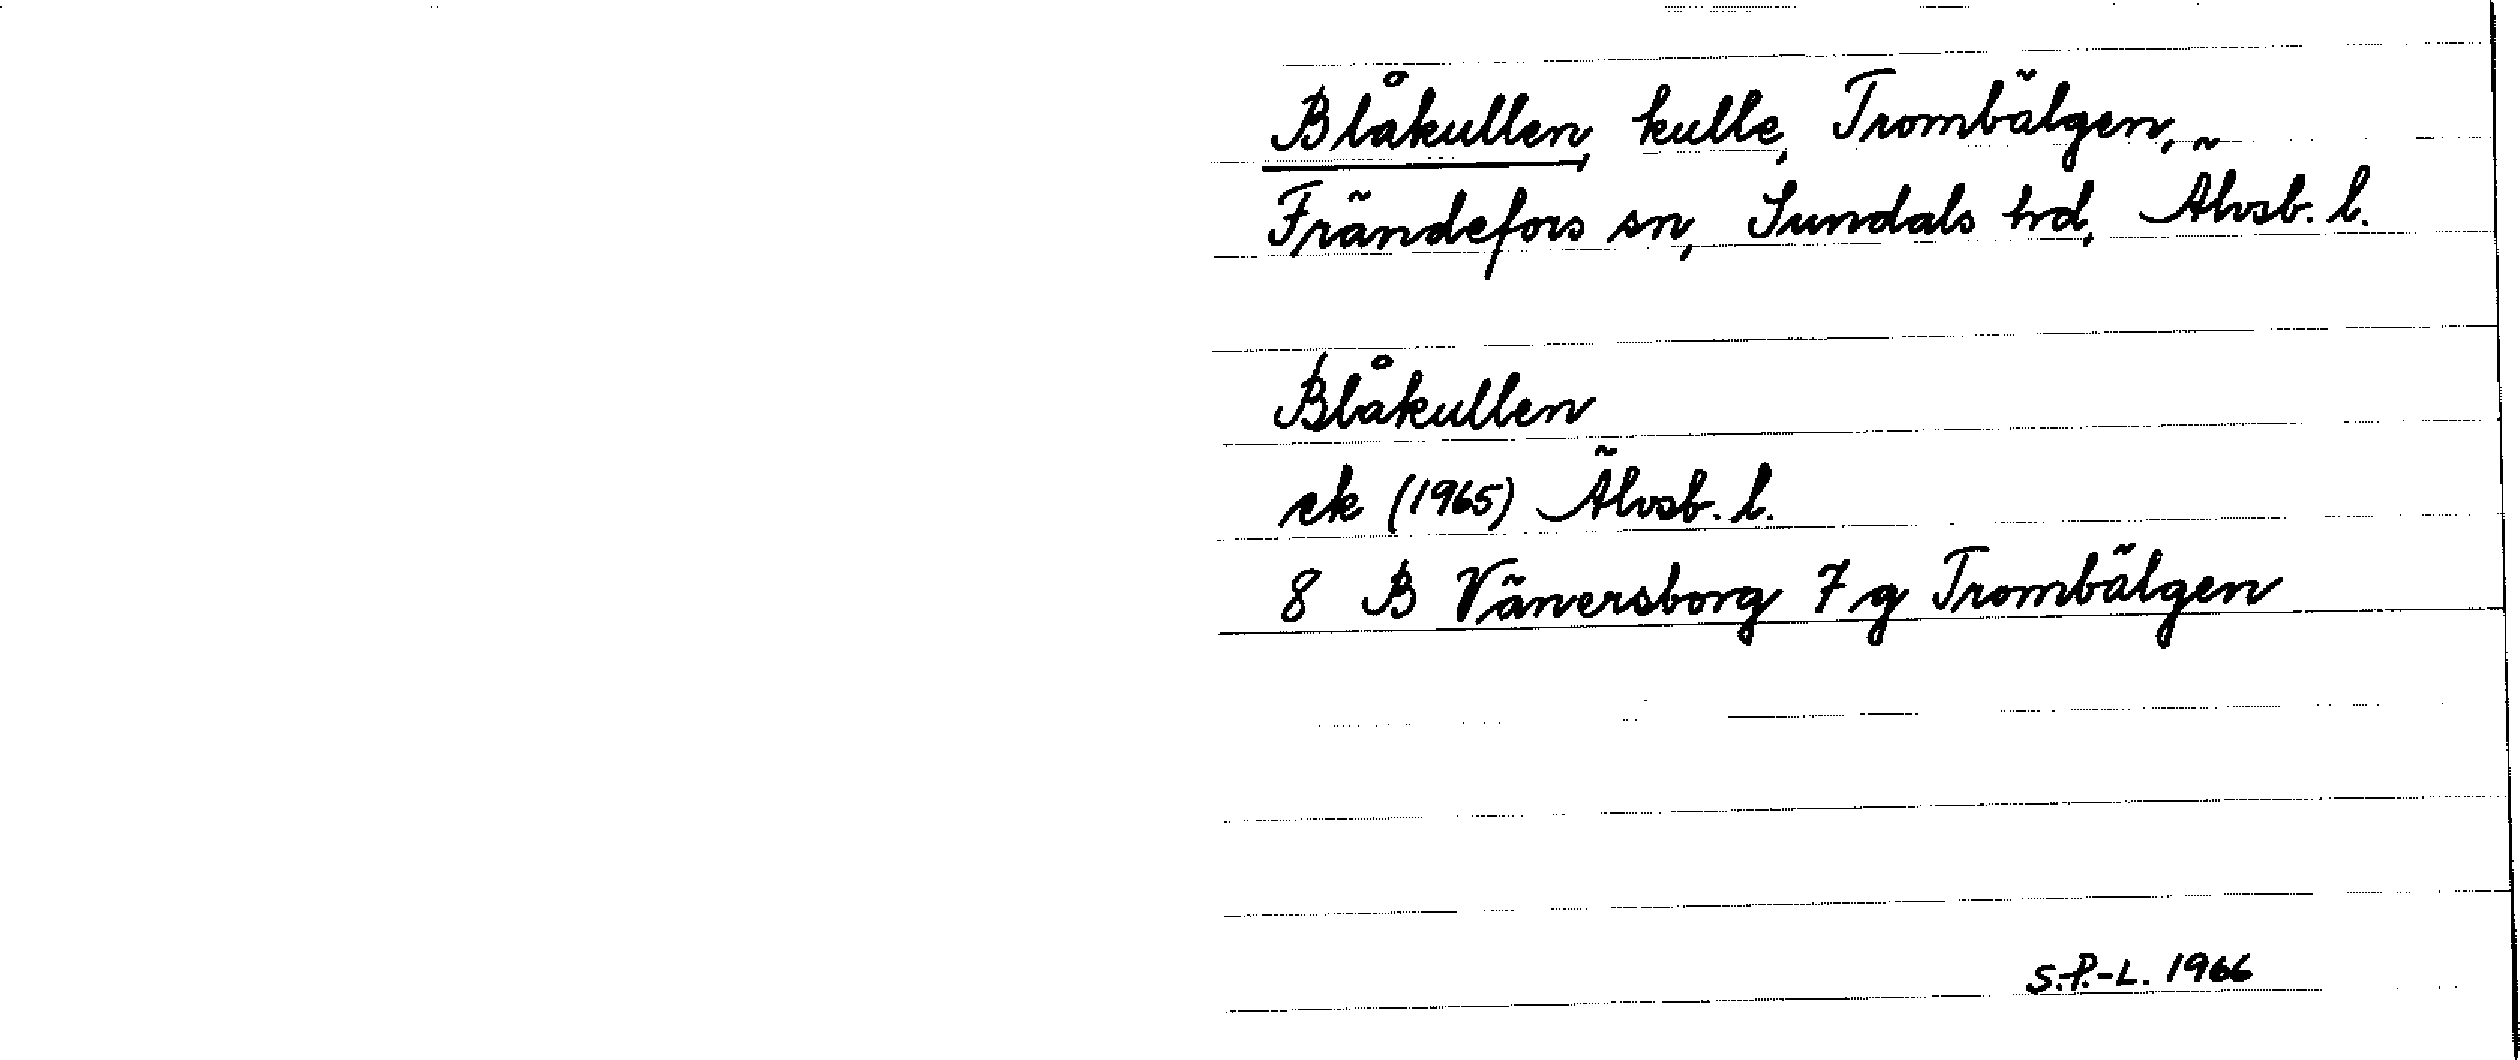 Blåkullen, kulle, Trombälgen,
Frändefors sn, Sundals hd, Älvsb. l.
Blåkullen
ek (1965) Älvsb. l.
8 B Vänersborg 7 g Trombälgen
S.-P.-L. 1966